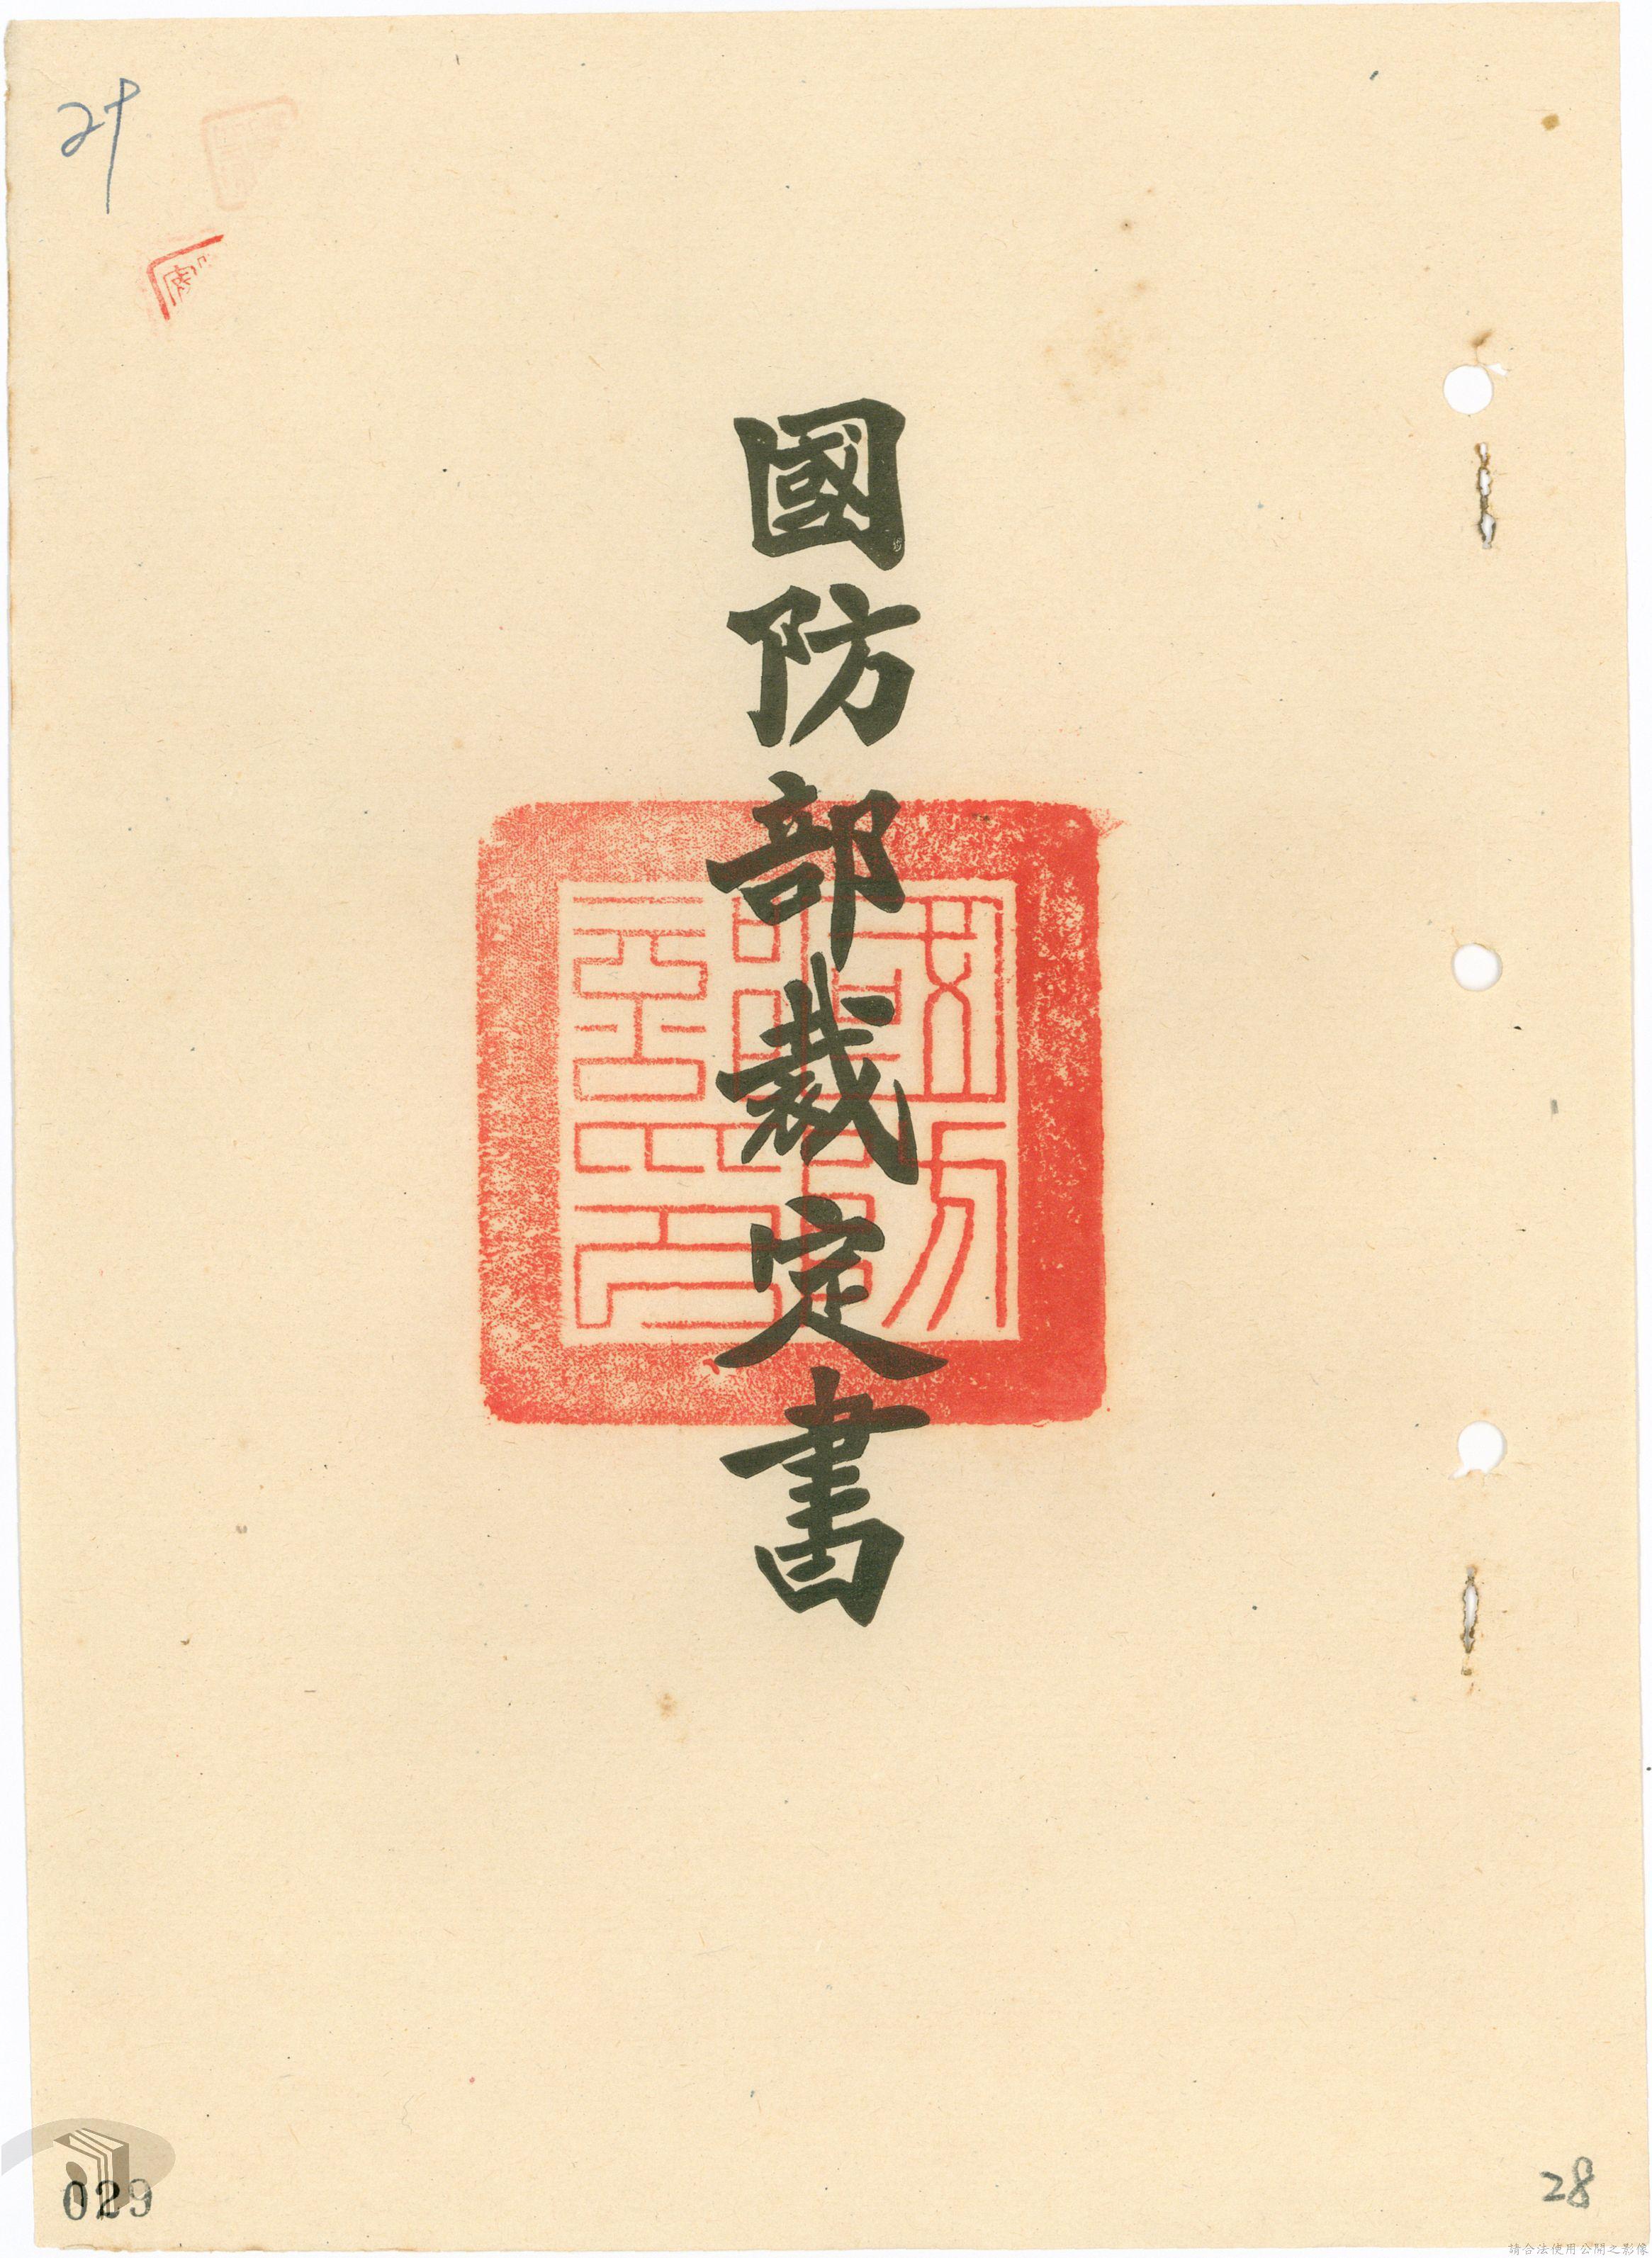 29
國防部裁定書
國防部印
029
28
請合法使用公開之影像